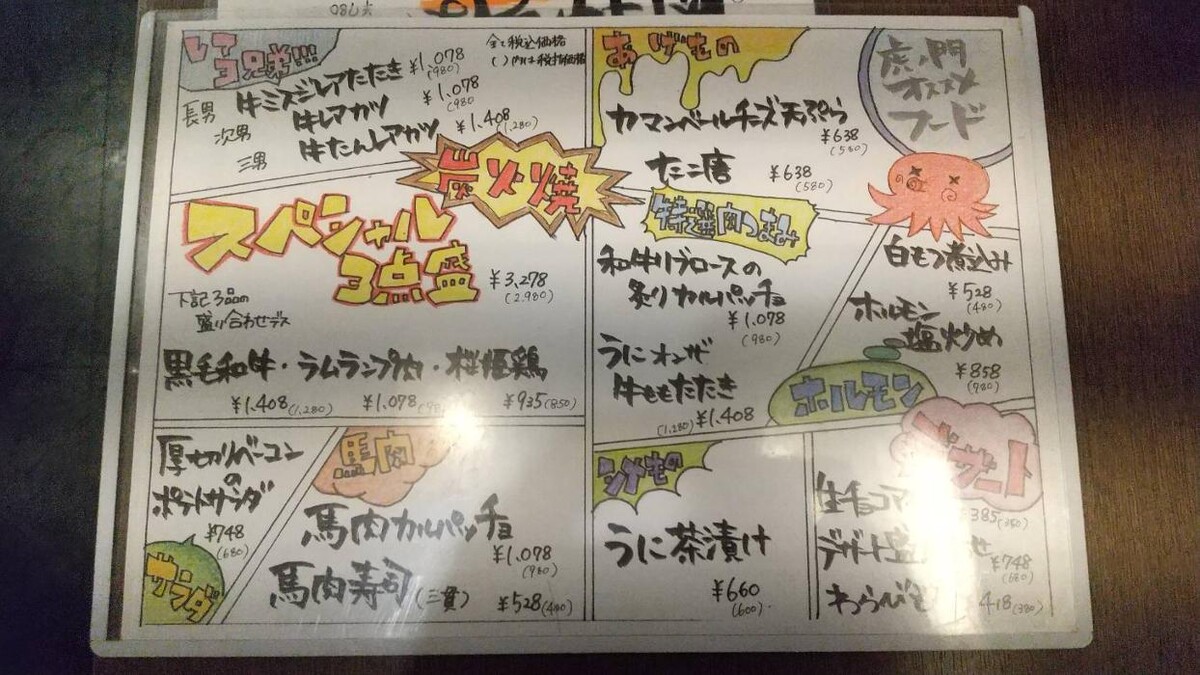 レア3兄弟!!!
全て税込価格
( )内は税抜価格
長男 牛ミスジレアたたき ¥1,078
(980)
次男 牛レアカツ ¥1,078
(980
三男 牛たんレアカツ ¥1,408
(1,280)
炭火焼
スペシャル
3点盛
¥3,278
(2,980)
下記3品の
盛り合わせデス
黒毛和牛・ラムランプ肉・桜姫鶏
¥1,408(1,280) ¥1,078 ¥935(850)
厚切りベーコン
の
ポテトサラダ
¥748
(680)
サラダ
馬肉
馬肉カルパッチョ
¥1,078
(980)
馬肉寿司(三貫) ¥528(480)
あげもの
カマンベールチーズ天ぷら
¥638
(580)
たこ唐 ¥638
(580)
虎ノ門
オススメ
フード
特選肉つまみ
和牛リブロースの
炙りカルパッチョ
¥1,078
(980)
うにオンザ
牛ももたたき
(1,280) ¥1,408
白もつ煮込み
¥528
(480)
ホルモン
塩炒め
¥858
(780)
ホルモン
シメもの
うに茶漬け
¥660
(600)
デザート
生チョコア
385(350)
デザート盛 せ
¥748
(680)
わらびも
418(380)